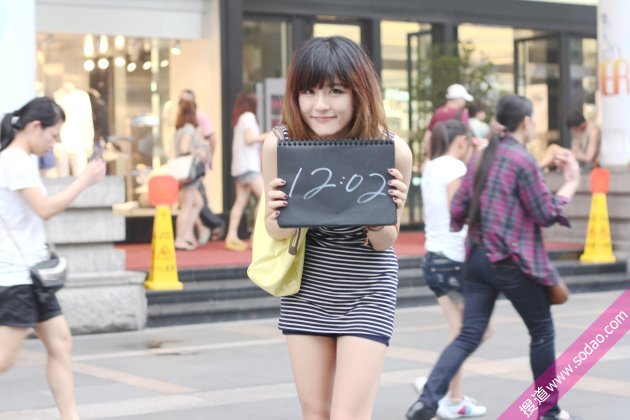 12:02
搜道 www.sodao.com